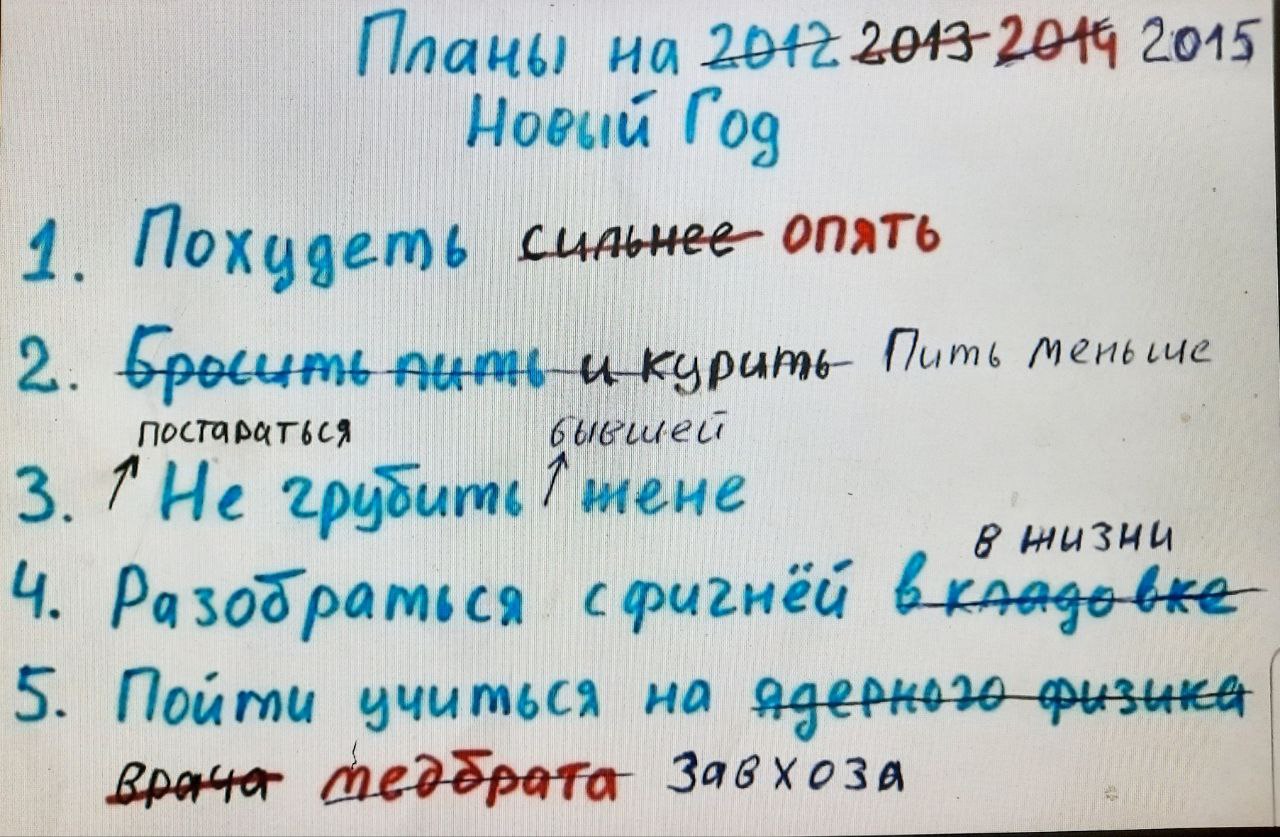 Планы на 2012 2013 2014 2015
Новый Год
1. Похудеть сильнее опять
2. Бросить пить и курить Пить меньше
постараться бывшей
3. Не грубить жене
в жизни
4. Разобраться с фигнёй в кладовке
5. Пойти учиться на ядерного физика
врача медбрата завхоза